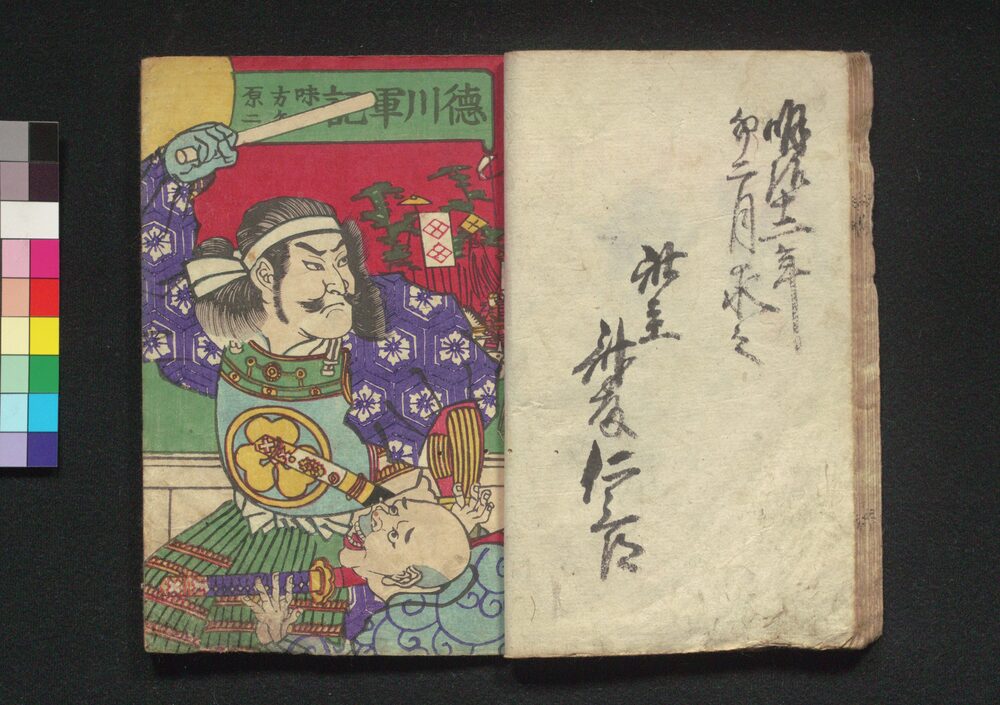 明治十二年
卯二月求之
持主
仁三郎
徳川軍記
味方ケ原二